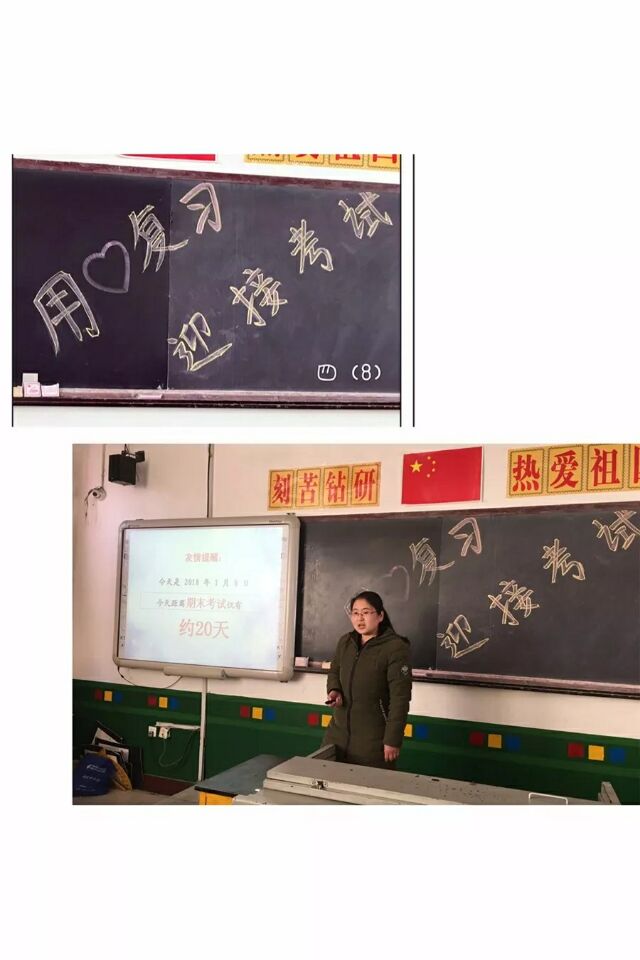 用♡复习
迎接考试
四 (8)
刻苦钻研
热爱祖
友情提醒：
今天是 2018 年 1 月 8 日
今天距离期末考试仅有
约20天
复习
迎接考试